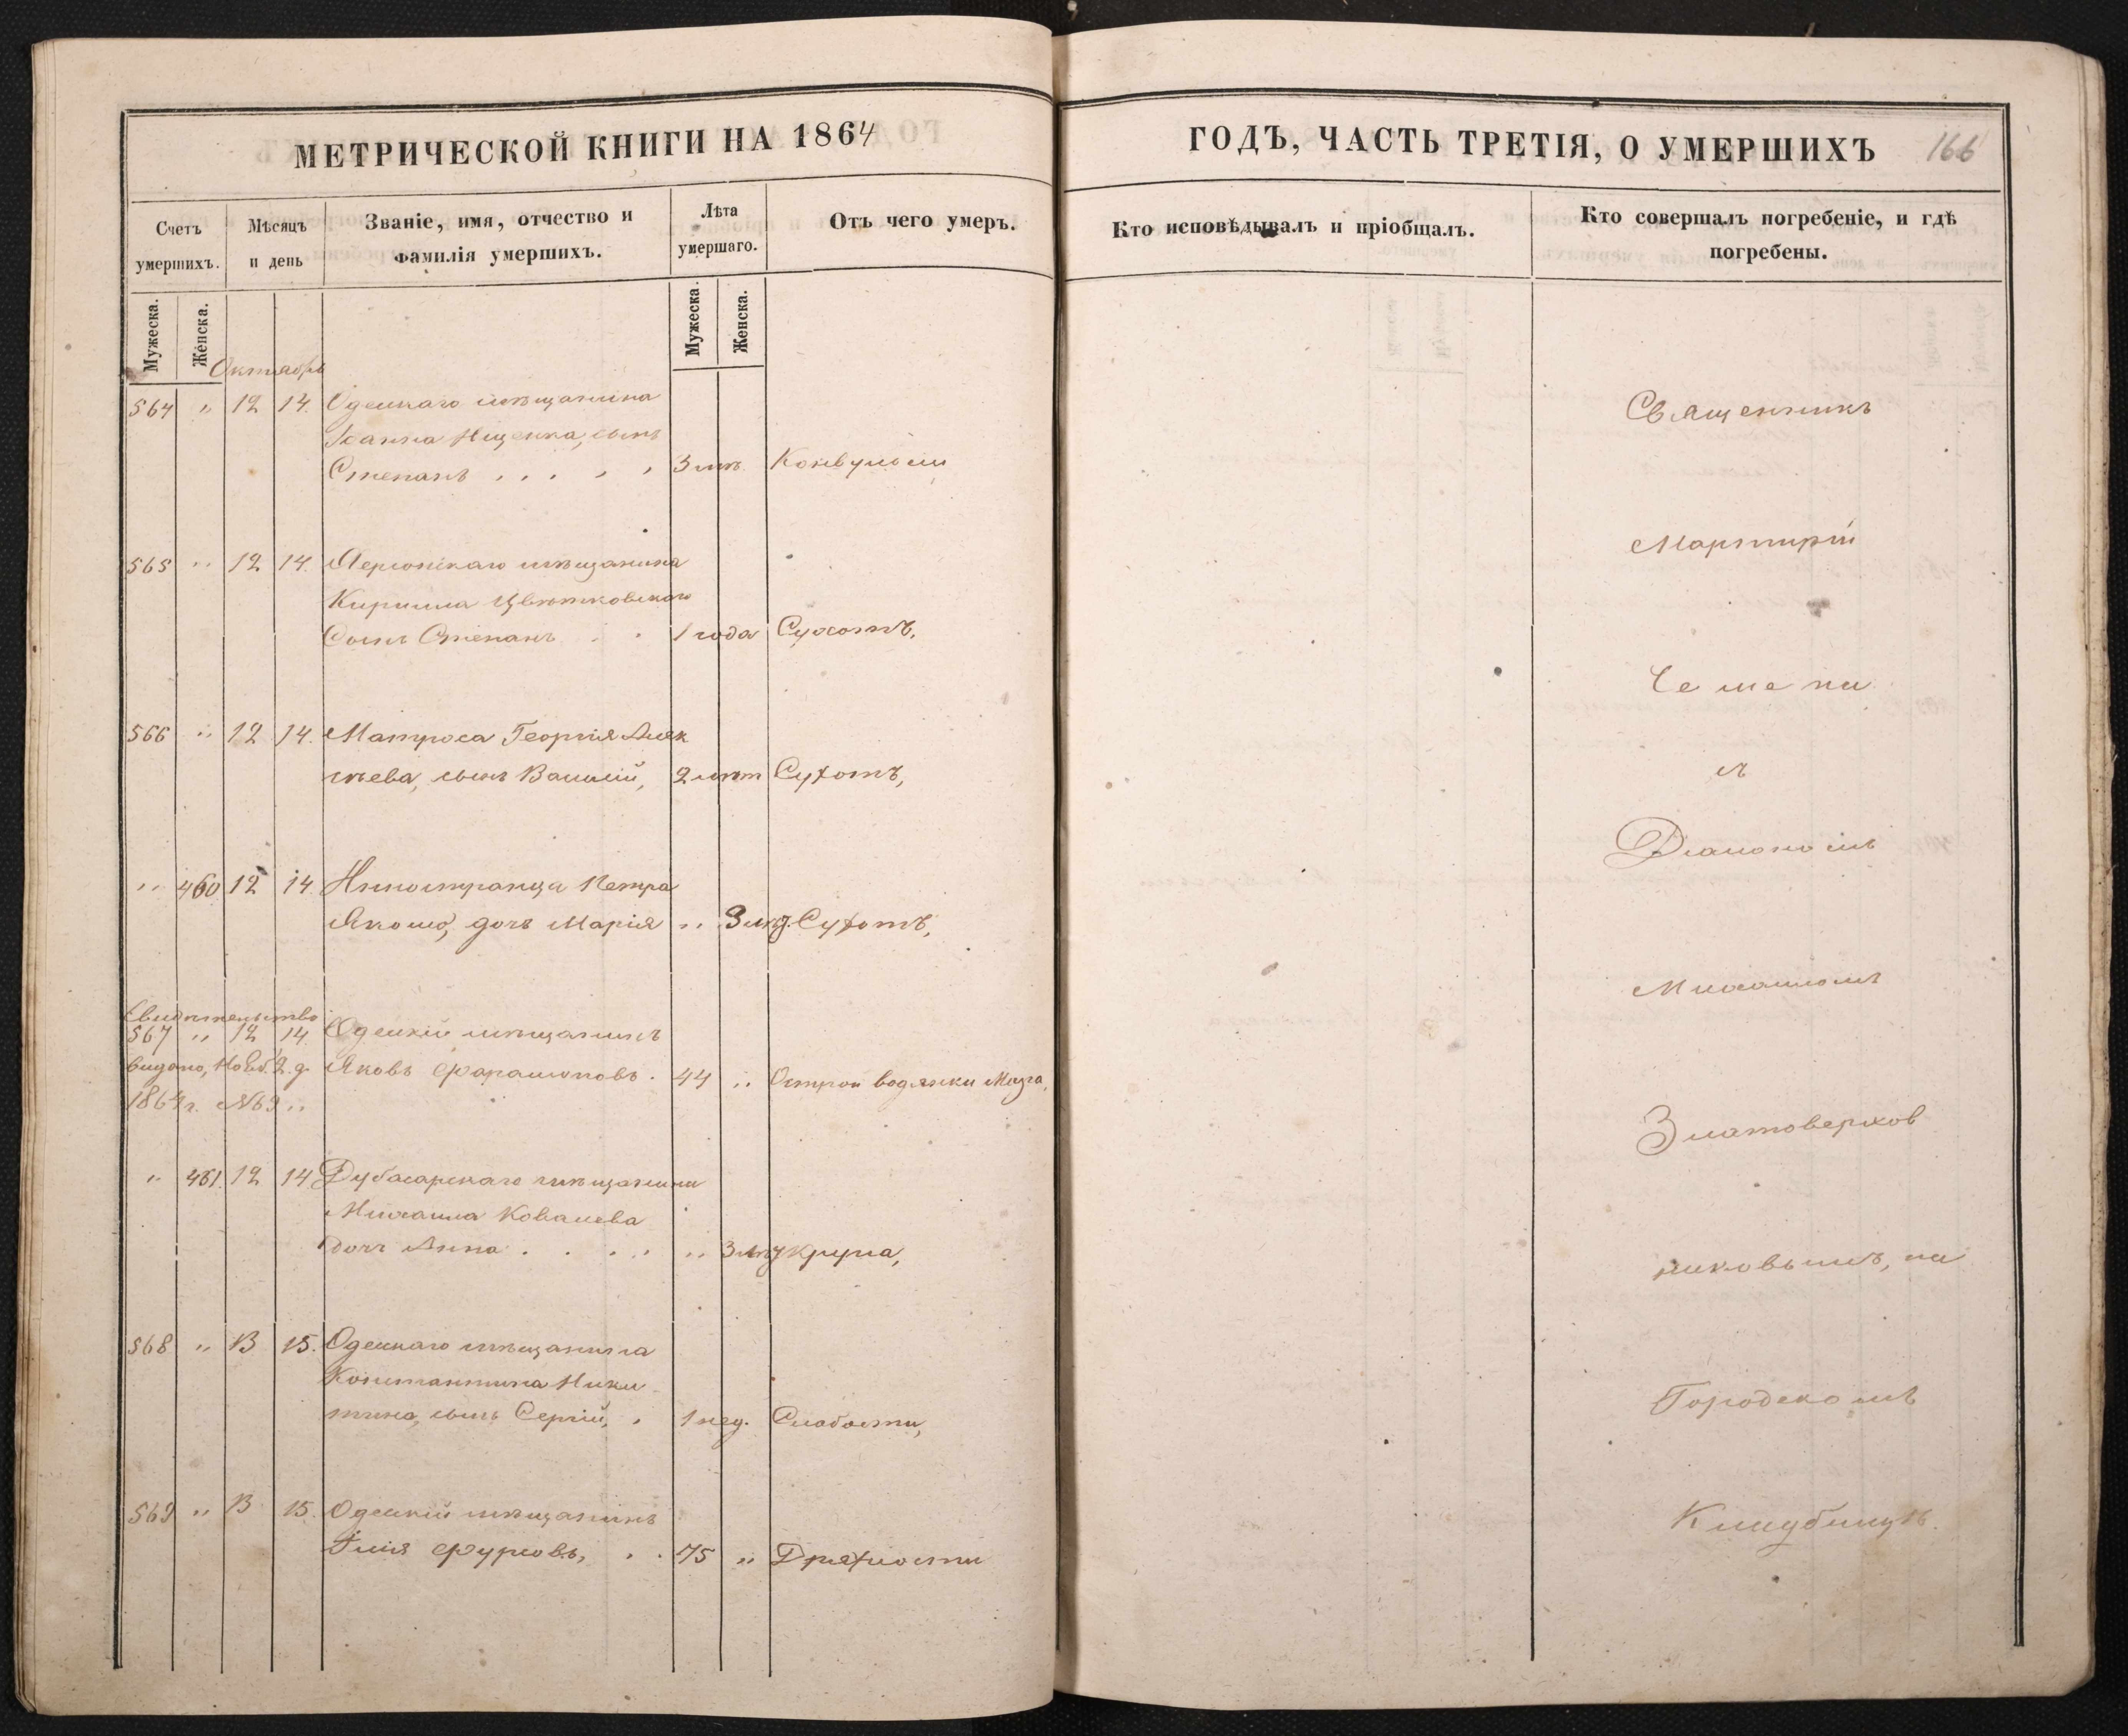 МЕТРИЧЕСКОЙ КНИГИ НА 1864
Счетъ умершихъ.
Мѣсяцъ и день
Званіе, имя, отчество и фамилія умершихъ.
Лѣта умершаго.
Отъ чего умеръ.
Мужеска.
Женска.
Мужеска.
Женска.
Октябрь
564 " 12 14. Одесскаго мѣщанина
Іоанна Ищенка, сынъ
Степанъ . . . . . 3 лѣт. Конвульсіи
565 " 12 14. Херсонскаго мѣщанина
Кирилла Цвѣтковскаго
Сынъ Степанъ . . 1 года Сухотъ,
566 " 12 14. Матроса Георгія Алек
сѣева, сынъ Василій, 2 лѣт Сухотъ,
" 460 12 14. Иностранца Петра
дочь Марія " Сухотъ,
Свидѣтельство
567 " 12 14 Одесскій мѣщанинъ
видано, Нояб. 2 д. Яковъ Фарашоновъ . 44 " Острой водянки Мозга,
1864 г. №
" 461. 12 14 Дубасарскаго мѣщанина
Михаила Ковалева
дочь Анна . . . . . " Крупа,
568 " 13 15. Одесскаго мѣщанина
Константина Ники
тина, сынъ Сергій, . 1 нед. Слабости,
569 " 13 15. Одесскій мѣщанинъ
Ілія Фурсовъ, . . 75 " Дряхлости
ГОДЪ, ЧАСТЬ ТРЕТІЯ, О УМЕРШИХЪ 166
Кто исповѣдывалъ и пріобщалъ.
Кто совершалъ погребеніе, и гдѣ погребены.
Священникъ
Мартирій
Чемена
съ
Діакономъ
Михаиломъ
Златоверхов
никовымъ, на
Городскомъ
Кладбищѣ.